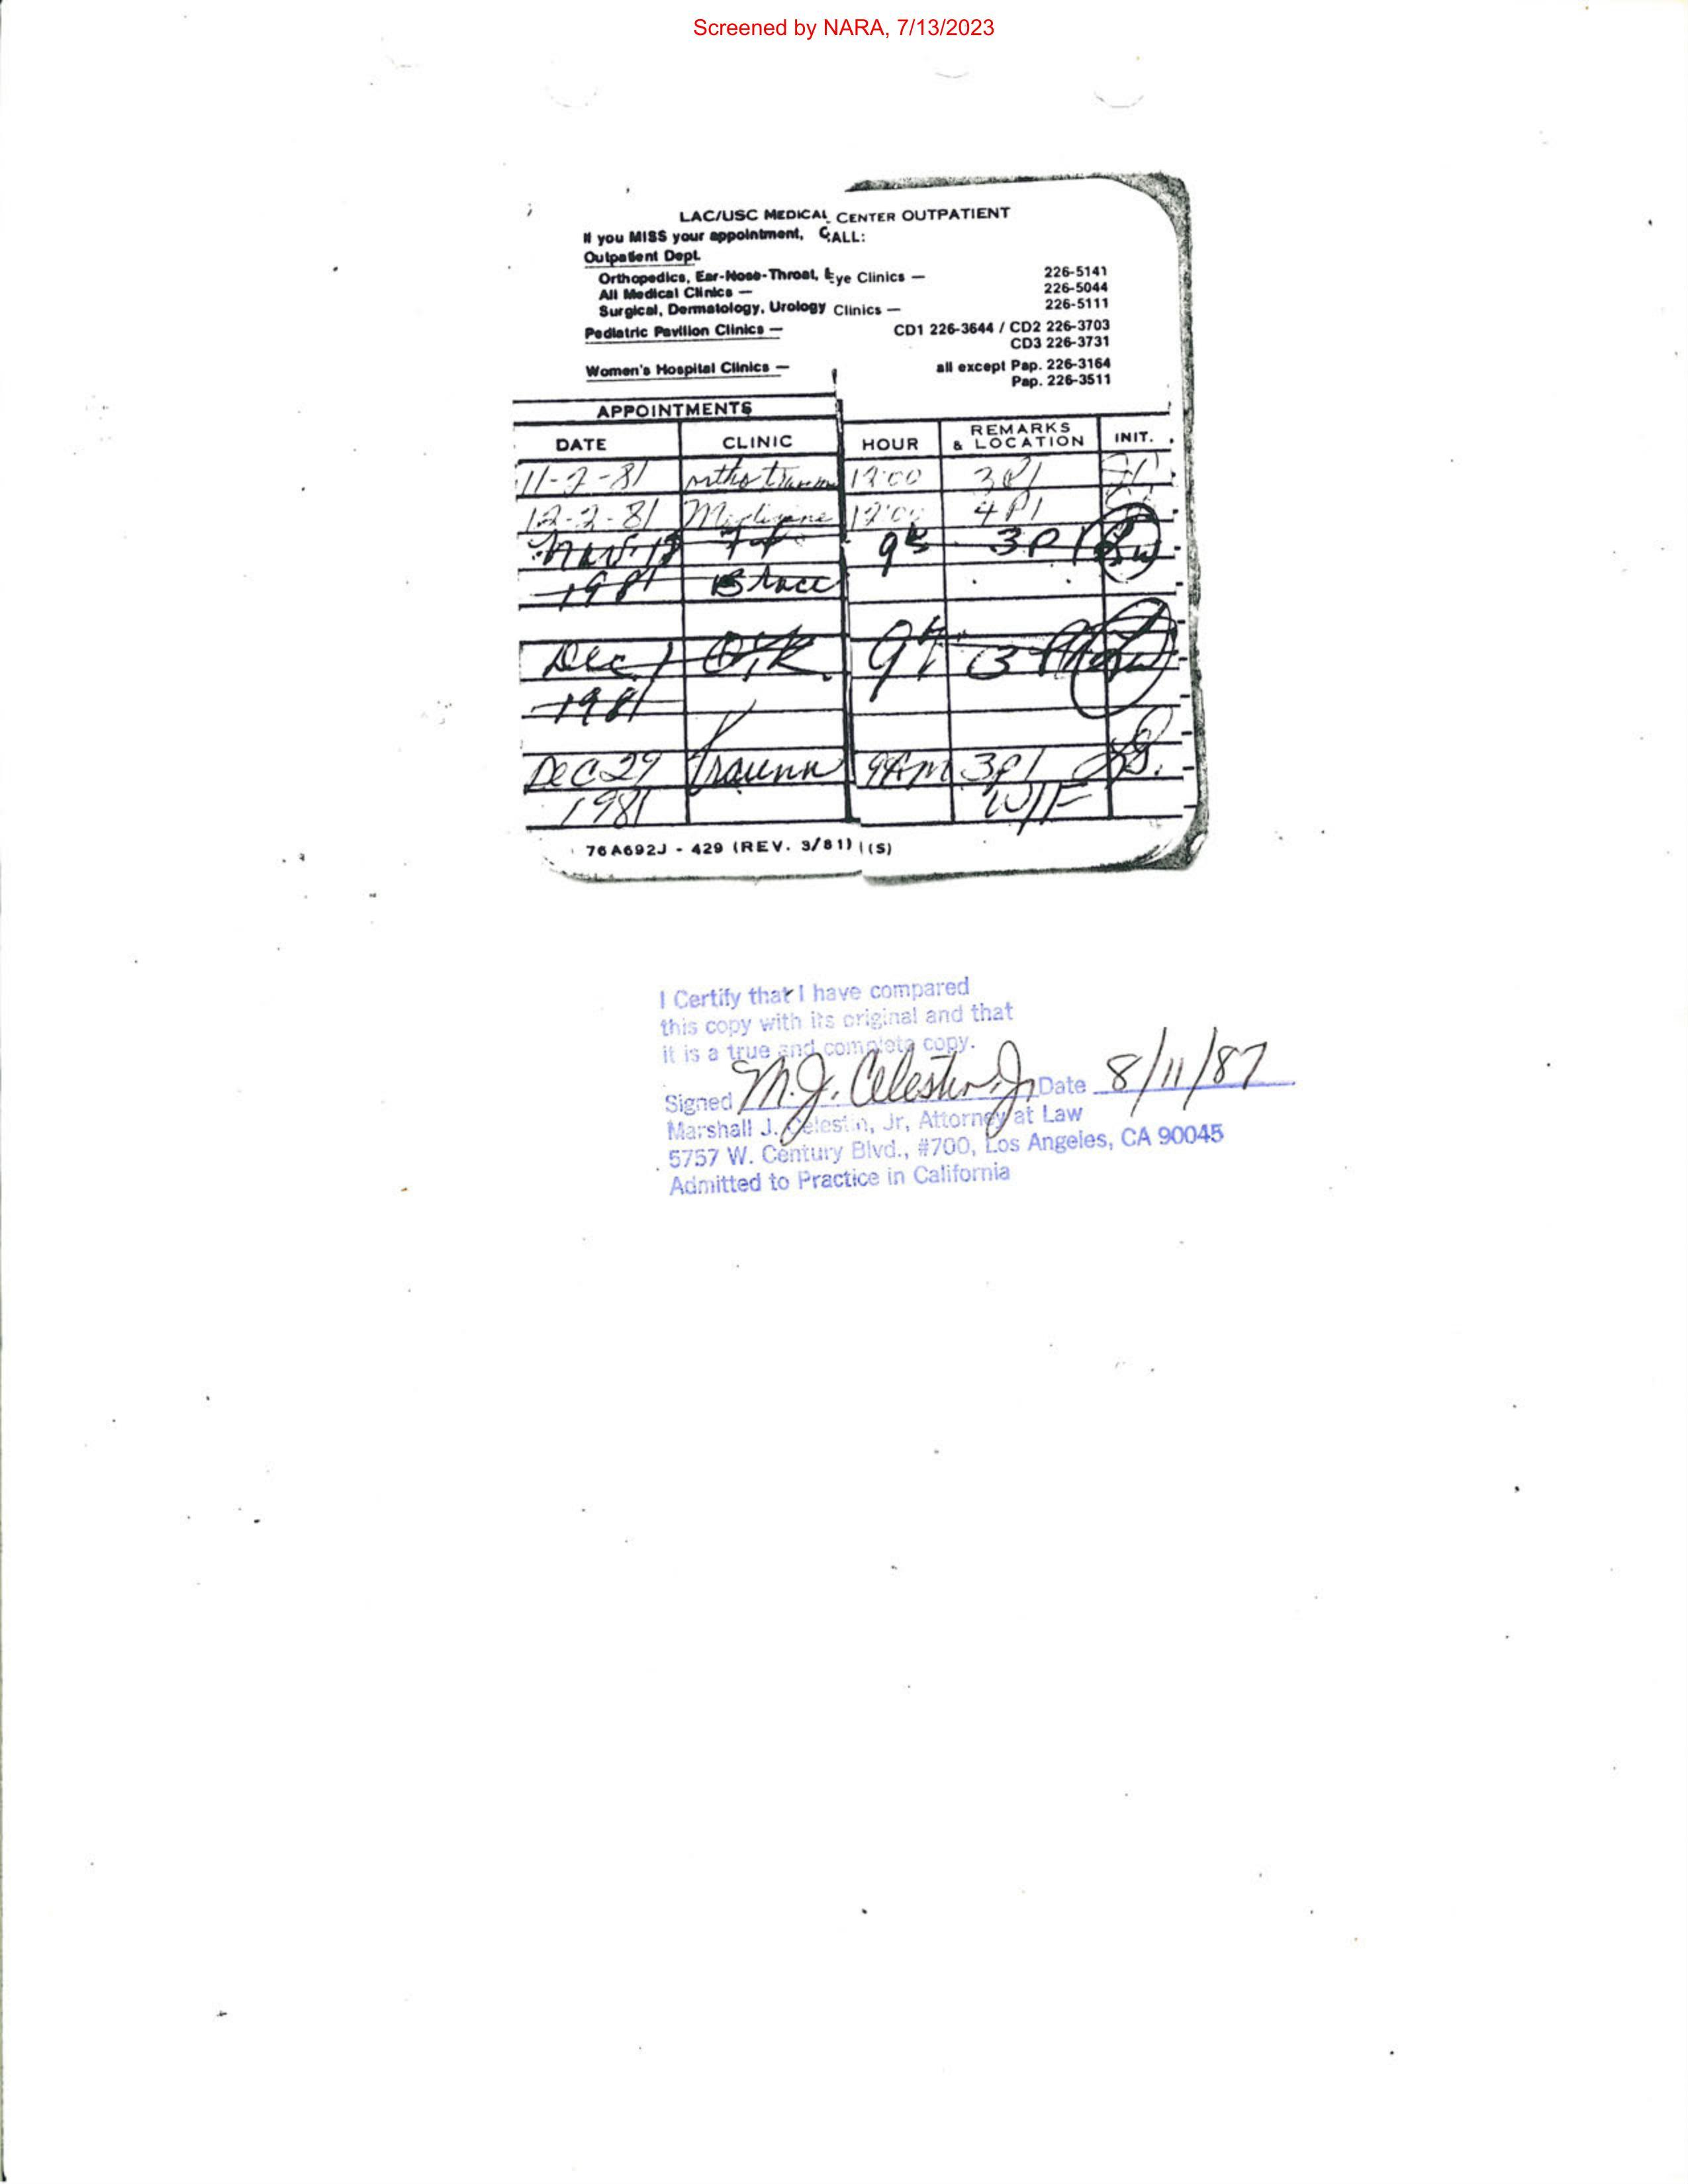 Screened by NARA, 7/13/2023
LAC/USC MEDICAL CENTER OUTPATIENT
If you MISS your appointment, CALL:
Outpatient Dept.
Orthopedics, Ear-Nose-Throat, Eye Clinics — 226-5141
All Medical Clinics — 226-5044
Surgical, Dermatology, Urology Clinics — 226-5111
Pediatric Pavilion Clinics — CD1 226-3644 / CD2 226-3703
CD3 226-3731
Women's Hospital Clinics — all except Pap. 226-3164
Pap. 226-3511
APPOINTMENTS
DATE CLINIC HOUR REMARKS & LOCATION INIT.
11-2-81 ortho trauma 12:00 3P1
12-2-81 Medicine 12:00 4P1
Nov 3P1
1981 Brace
Dec 1
1981
Dec 29 Trauma 9AM 3P1
1981 W/F
76A692J - 429 (REV. 3/81) (S)
I Certify that I have compared
this copy with its original and that
it is a true and complete copy.
Signed M.J. Celestin, Jr Date 8/11/87
Marshall J. Celestin, Jr, Attorney at Law
5757 W. Century Blvd., #700, Los Angeles, CA 90045
Admitted to Practice in California